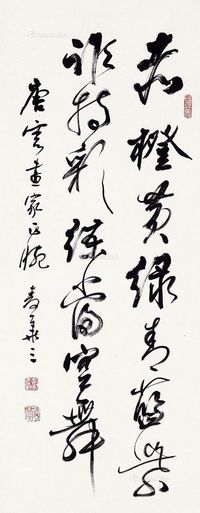 赤橙黄绿青蓝紫
谁持彩练当空舞
唐云画家正腕